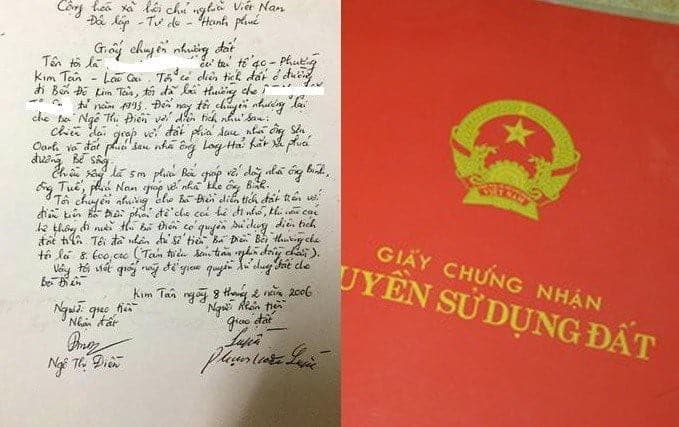 Cộng hoà xã hội chủ nghĩa Việt Nam
Độc lập - Tự do - Hạnh phúc
Giấy chuyển nhượng đất
Tên tôi là cư trú tổ 40 - Phường
Kim Tân - Lào Cai. Tôi có diện tích đất ở đường
đi Bến Đá Kim Tân, tôi đã bồi thường cho
từ năm 1993. Đến nay tôi chuyển nhượng lại
cho bà Ngô Thị Điền với diện tích như sau.
Chiều dài giáp với đất phía sau nhà ông Sơn
Oanh và đất phía sau nhà ông Long Hà hắt xã phía
đường Bờ Sông.
Chiều rộng là 5m phía Bắc giáp với dãy nhà ông Bình,
ông Tuế, phía Nam giáp với nhà kho ông Bình.
Tôi chuyển nhượng cho Bà Điền diện tích đất trên với
điều kiện Bà Điền phải để cho các hộ đi nhờ, khi nào các
hộ không đi nữa thì Bà Điền có quyền sử dụng diện tích
đất trên. Tôi đã nhận đủ số tiền Bà Điền Bồi thường cho
tôi là 8.600.000 (Tám triệu sáu trăm nghìn đồng chẵn).
Vậy tôi viết giấy này để giao quyền sử dụng đất cho
Bà Điền
Kim Tân ngày 8 tháng 2 năm 2006
Người giao tiền Người nhận tiền
Nhận đất Giao đất
Ngô Thị Điền
VIỆT NAM
GIẤY CHỨNG NHẬN
UYỀN SỬ DỤNG ĐẤT